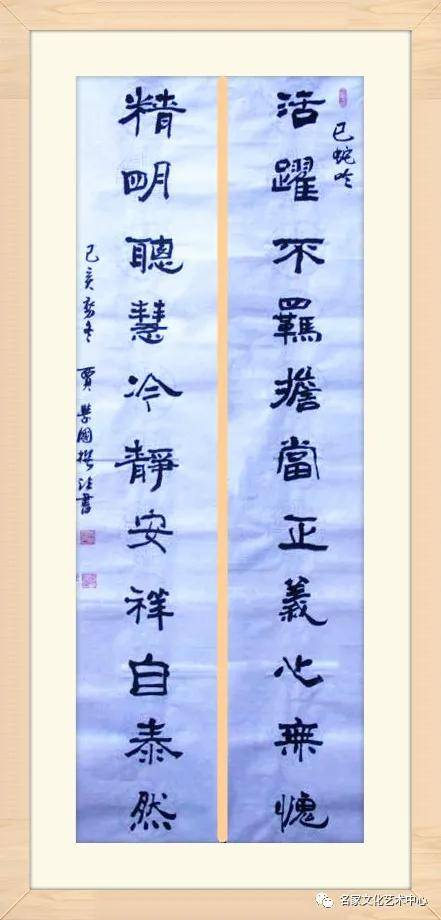 巳蛇吟
活躍不羈擔當正義心無愧
精明聰慧冷靜安祥自泰然
己亥冬 賈學國撰書
名家文化艺术中心